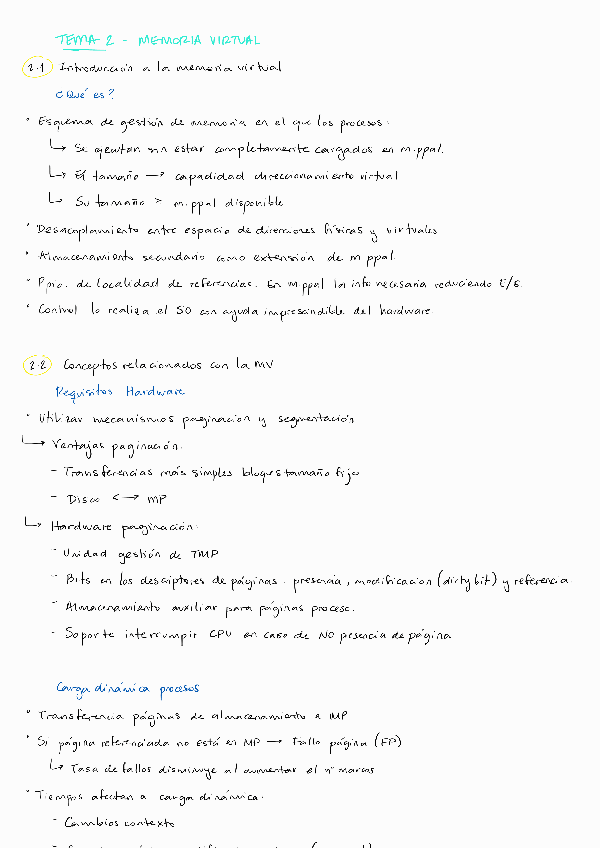 TEMA 2 - MEMORIA VIRTUAL
2.1 Introducción a la memoria virtual
¿Qué es?
• Esquema de gestión de memoria en el que los procesos:
↳ Se ejecutan sin estar completamente cargados en m.ppal.
↳ El tamaño → capacidad direccionamiento virtual
↳ Su tamaño > m.ppal disponible
• Desacoplamiento entre espacio de direcciones físicas y virtuales
• Almacenamiento secundario como extensión de m.ppal.
• Ppio. de localidad de referencias. En m.ppal la info necesaria reduciendo E/S.
• Control lo realiza el SO con ayuda imprescindible del hardware.
2.2 Conceptos relacionados con la MV
Requisitos Hardware
• Utilizar mecanismos paginación y segmentación
↳ Ventajas paginación:
- Transferencias más simples bloques tamaño fijo
- Disco <→ MP
↳ Hardware paginación:
- Unidad gestión de TMP
- Bits en los descriptores de páginas: presencia, modificación (dirty bit) y referencia
- Almacenamiento auxiliar para páginas proceso.
- Soporte interrumpir CPU en caso de NO presencia de página
Carga dinámica procesos
• Transferencia páginas de almacenamiento a MP
• Si página referenciada no está en MP → Fallo página (FP)
↳ Tasa de fallos disminuye al aumentar el nº marcos
• Tiempos afectan a carga dinámica:
- Cambios contexto